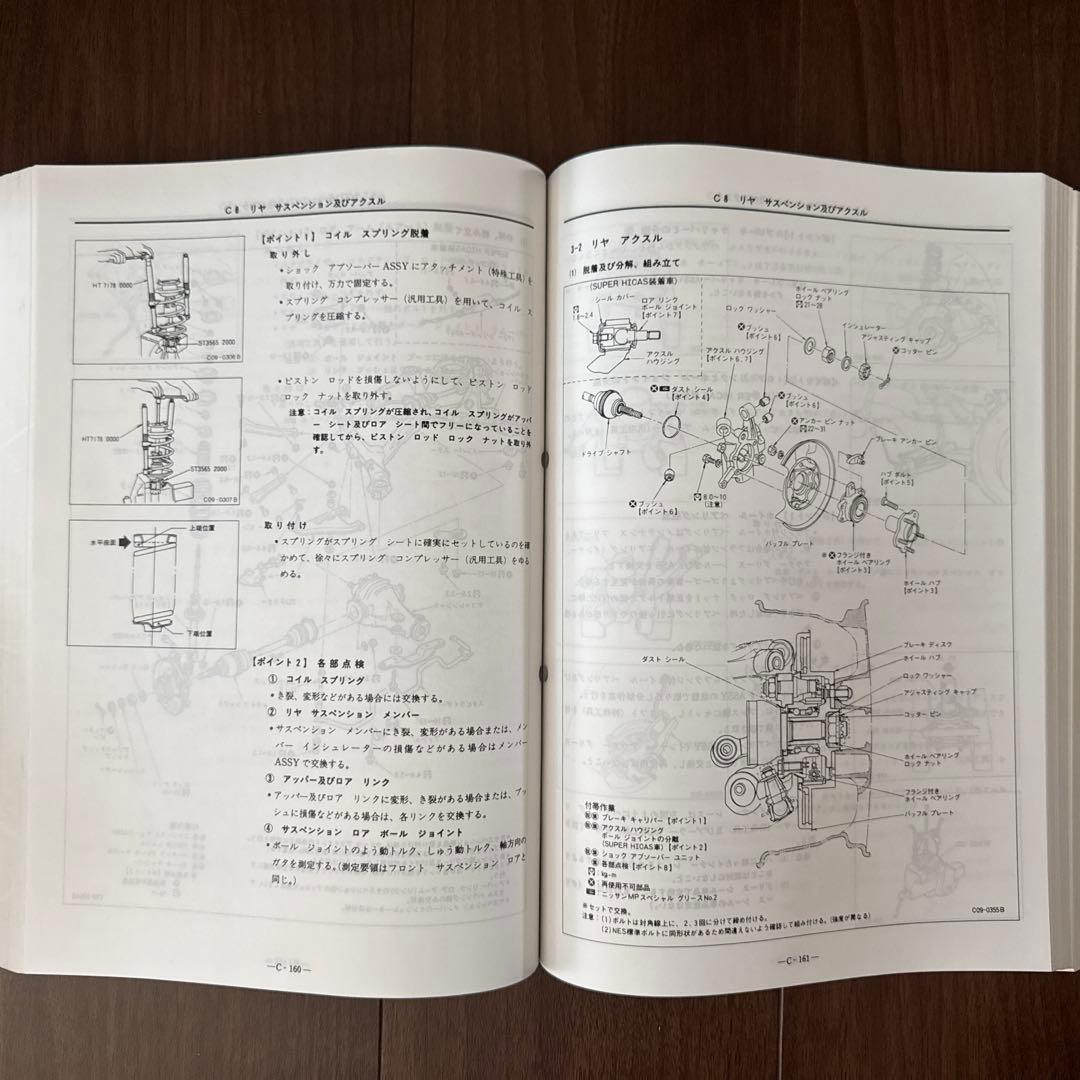 C8 リヤ サスペンション及びアクスル
【ポイント1】 コイル スプリング脱着
取り外し
•ショック アブソーバー ASSY にアタッチメント（特殊工具）を
取り付け、万力で固定する。
•スプリング コンプレッサー（汎用工具）を用いて、コイル ス
プリングを圧縮する。
HT7178 0000
ST3565 2000
C09-0306B
•ピストン ロッドを損傷しないようにして、ピストン ロッド
ロック ナットを取り外す。
注意：コイル スプリングが圧縮され、コイル スプリングがアッパ
ー シート及びロア シート間でフリーになっていることを
確認してから、ピストン ロッド ロック ナットを取り外
す。
HT7178 0000
ST3565 2000
C09-0307B
取り付け
•スプリングがスプリング シートに確実にセットしているのを確
かめて、徐々にスプリング コンプレッサー（汎用工具）をゆる
める。
上端位置
水平座面
下端位置
【ポイント2】 各部点検
① コイル スプリング
•き裂、変形などがある場合には交換する。
② リヤ サスペンション メンバー
•サスペンション メンバーにき裂、変形がある場合または、メン
バー インシュレーターの損傷などがある場合はメンバー
ASSYで交換する。
③ アッパー及びロア リンク
•アッパー及びロア リンクに変形、き裂がある場合または、ブッ
シュに損傷などがある場合は、各リンクを交換する。
④ サスペンション ロア ボール ジョイント
•ボール ジョイントのよう動トルク、しゅう動トルク、軸方向の
ガタを測定する。（測定要領はフロント サスペンション ロアと
同じ。）
—C-160—
C8 リヤ サスペンション及びアクスル
3-2 リヤ アクスル
(1) 脱着及び分解、組み立て
(SUPER HICAS装着車)
シール カバー
1.8〜2.4
ロア リンク
ボール ジョイント
【ポイント7】
アクスル
ハウジング
ホイール ベアリング
ロック ナット
21〜28
ロック ワッシャー
インシュレーター
アジャスティング キャップ
コッター ピン
ブッシュ
【ポイント6】
アクスル ハウジング
【ポイント6、7】
ダスト シール
【ポイント4】
ブッシュ
【ポイント6】
アンカー ピン ナット
22〜31
ブレーキ アンカー ピン
ドライブ シャフト
ハブ ボルト
【ポイント5】
ブッシュ
【ポイント6】
8.0〜10
(注意)
バッフル プレート
※ フランジ付き
ホイール ベアリング
【ポイント3】
ホイール ハブ
【ポイント3】
ダスト シール
ブレーキ ディスク
ホイール ハブ
ロック ワッシャー
アジャスティング キャップ
コッター ピン
ホイール ベアリング
ロック ナット
フランジ付き
ホイール ベアリング
バッフル プレート
付帯作業
ブレーキ キャリパー【ポイント1】
アクスル ハウジング
ボール ジョイントの分離
(SUPER HICAS車)【ポイント2】
ショック アブソーバー ユニット
各部点検【ポイント8】
：kg-m
：再使用不可部品
：ニッサンMPスペシャル グリースNo.2
※セットで交換。
注意：(1)ボルトは対角線上に、2、3回に分けて締め付ける。(強度が異なる)
(2)NES標準ボルトに同形状があるため間違えないよう確認して組み付ける。
C09-0355B
—C-161—